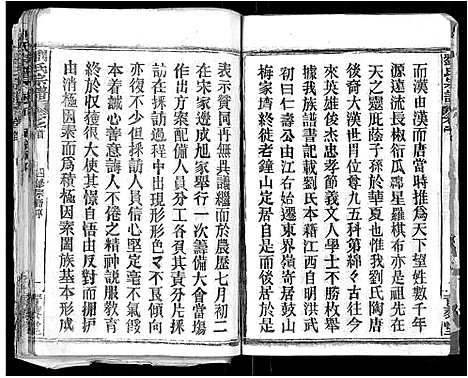 劉氏宗譜
而漢由漢而唐當時推為天下望姓數千年
源遠流長瓜瓞衍瓜鄰星羅棋布亦是祖先在
天之靈庇蔭子孫於華夏也惟我劉氏陶唐
後裔大漢世胄位尊九五科第綿々古往今
來英雄俊杰忠孝節義文人學士不勝枚舉
據我族譜書記載劉氏本籍江西自明洪武
初曰仁壽公由江右始遷東界嶺寄居高橋
梅家塆終老後鐘山定居自是而下
表示贊同再無異議繼而於農歷七月初二
在宋家邊成旭家舉行一次籌備大會當場
議定籌備配備人員分工各負其責分片採
訪在採訪過程中出現形形色々不良傾向
亦復不少但採訪人員信心堅定毫不氣餒
本着誠心善意誨人不倦之精神說服教育
終於收獲很大使其憬自悟由反對而擁护
由消極因素而為積極因素闔族基本形成
劉氏宗譜 卷之首 四修宗譜序